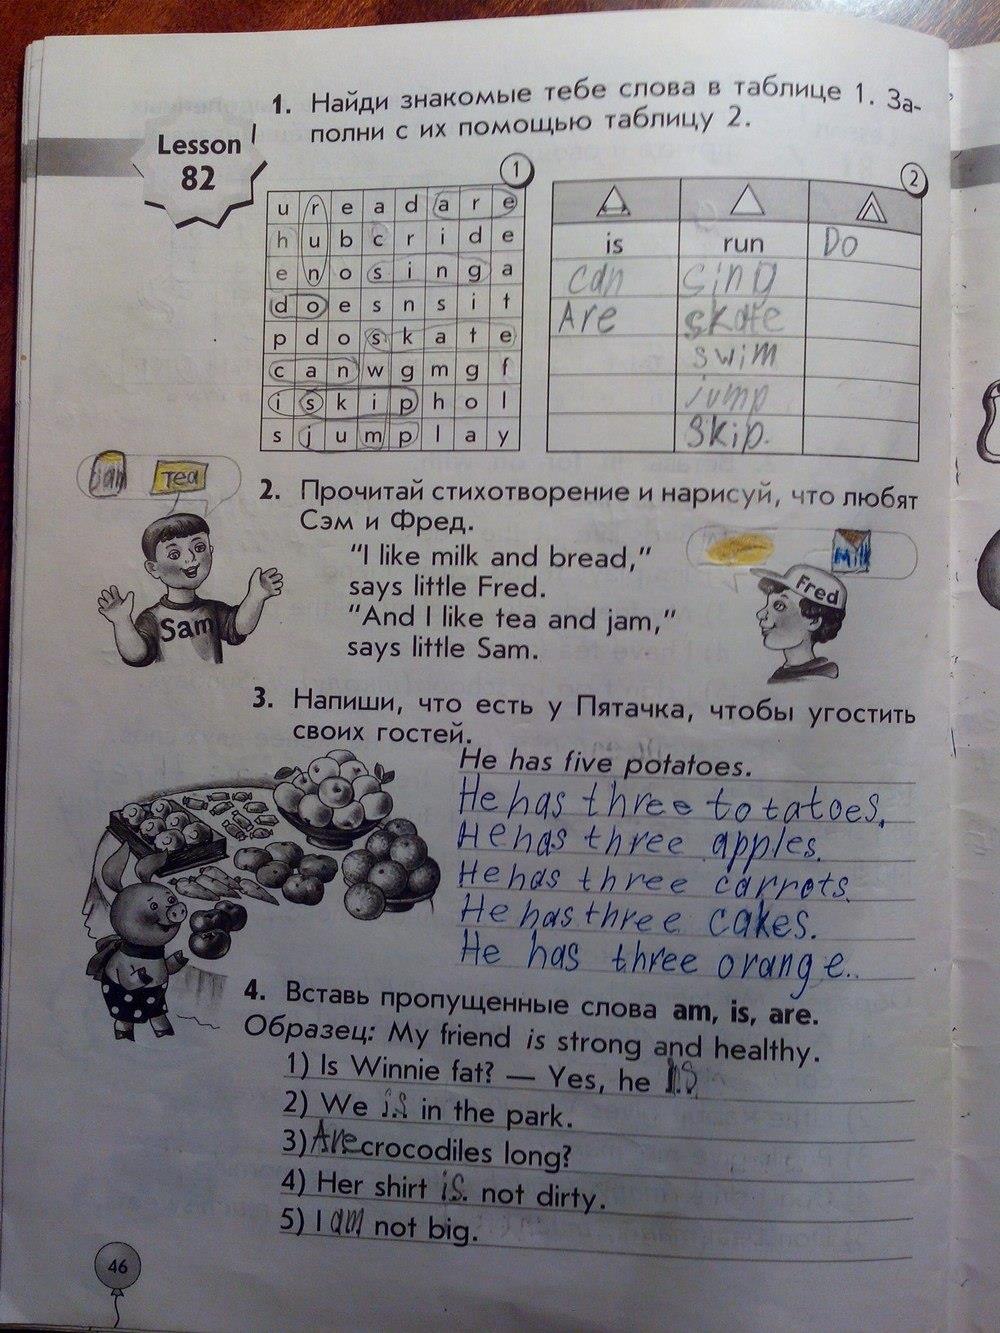 1. Найди знакомые тебе слова в таблице 1. За-
полни с их помощью таблицу 2.
Lesson
82
1
u r e a d a r e
h u b c r i d e
e n o s i n g a
d o e s n s i t
p d o s k a t e
c a n w g m g f
i s k i p h o l
s j u m p l a y
2
is run Do
can sing
Are skate
swim
jump
Skip.
jam Tea
2. Прочитай стихотворение и нарисуй, что любят
Сэм и Фред.
"I like milk and bread,"
says little Fred.
"And I like tea and jam,"
says little Sam.
Sam
Milk
Fred
3. Напиши, что есть у Пятачка, чтобы угостить
своих гостей.
He has five potatoes.
He has three totatoes.
He has three apples.
He has three carrots.
He has three cakes.
He has three orange..
4. Вставь пропущенные слова am, is, are.
Образец: My friend is strong and healthy.
1) Is Winnie fat? — Yes, he is
2) We is in the park.
3) Are crocodiles long?
4) Her shirt is. not dirty.
5) I am not big.
46